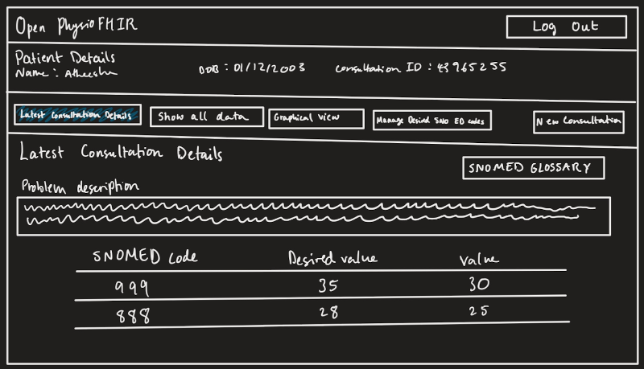 Open PhysioFHIR
Log Out
Patient Details
Name : Atheeshan DOB : 01/12/2003 Consultation ID : 43965255
Latest Consultation Details
Show all data
Graphical View
Manage Desired SNOMED codes
New Consultation
Latest Consultation Details
SNOMED GLOSSARY
Problem description
SNOMED Code Desired value Value
999 35 30
888 28 25